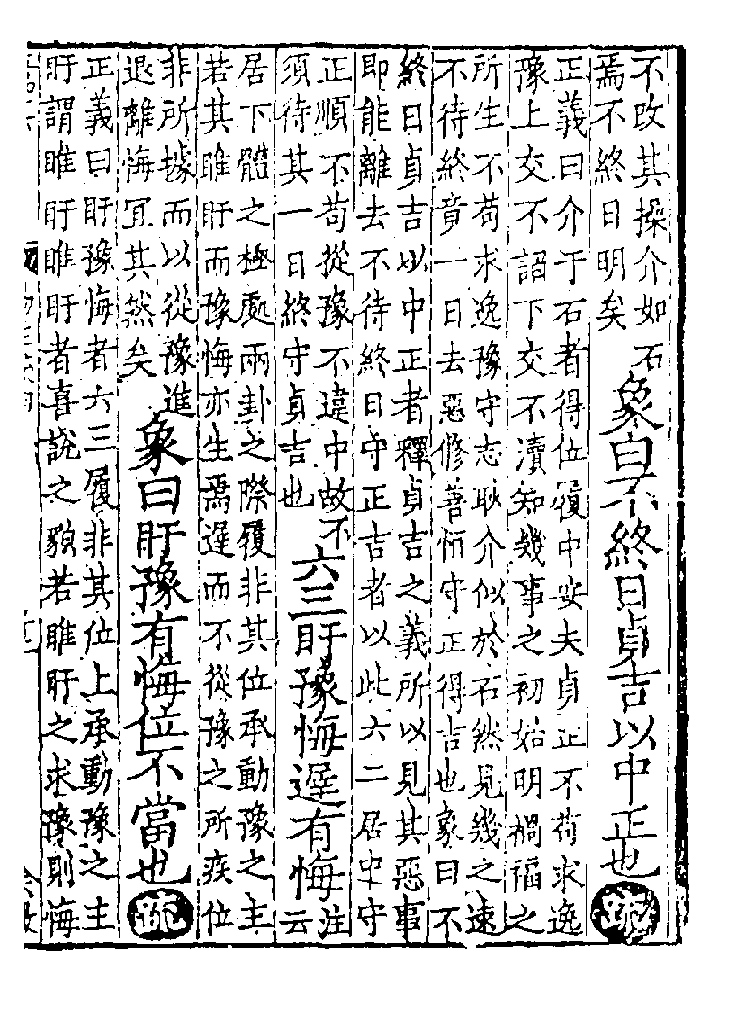 不改其操介如石
焉不終日明矣
象曰不終日貞吉以中正也疏
正義曰介于石者得位履中安夫貞正不苟求逸
豫上交不諂下交不瀆知幾事之初始明禍福之
所生不苟求逸豫守志耿介似於石然見幾之速
不待終竟一日去惡修善恒守正得吉也象曰不
終日貞吉以中正者釋貞吉之義所以見其惡事
即能離去不待終日守正吉者以此六二居中守
正順不苟從豫不違中故不
須待其一日終守貞吉也
六三盱豫悔遲有悔
注
云
居下體之極處兩卦之際履非其位承動豫之主
若其睢盱而豫悔亦生焉遲而不從豫之所疾位
非所據而以從豫進
退離悔宜其然矣
象曰盱豫有悔位不當也疏
正義曰盱豫悔者六三履非其位上承動豫之主
盱謂睢盱睢盱者喜說之貌若睢盱之求豫則悔